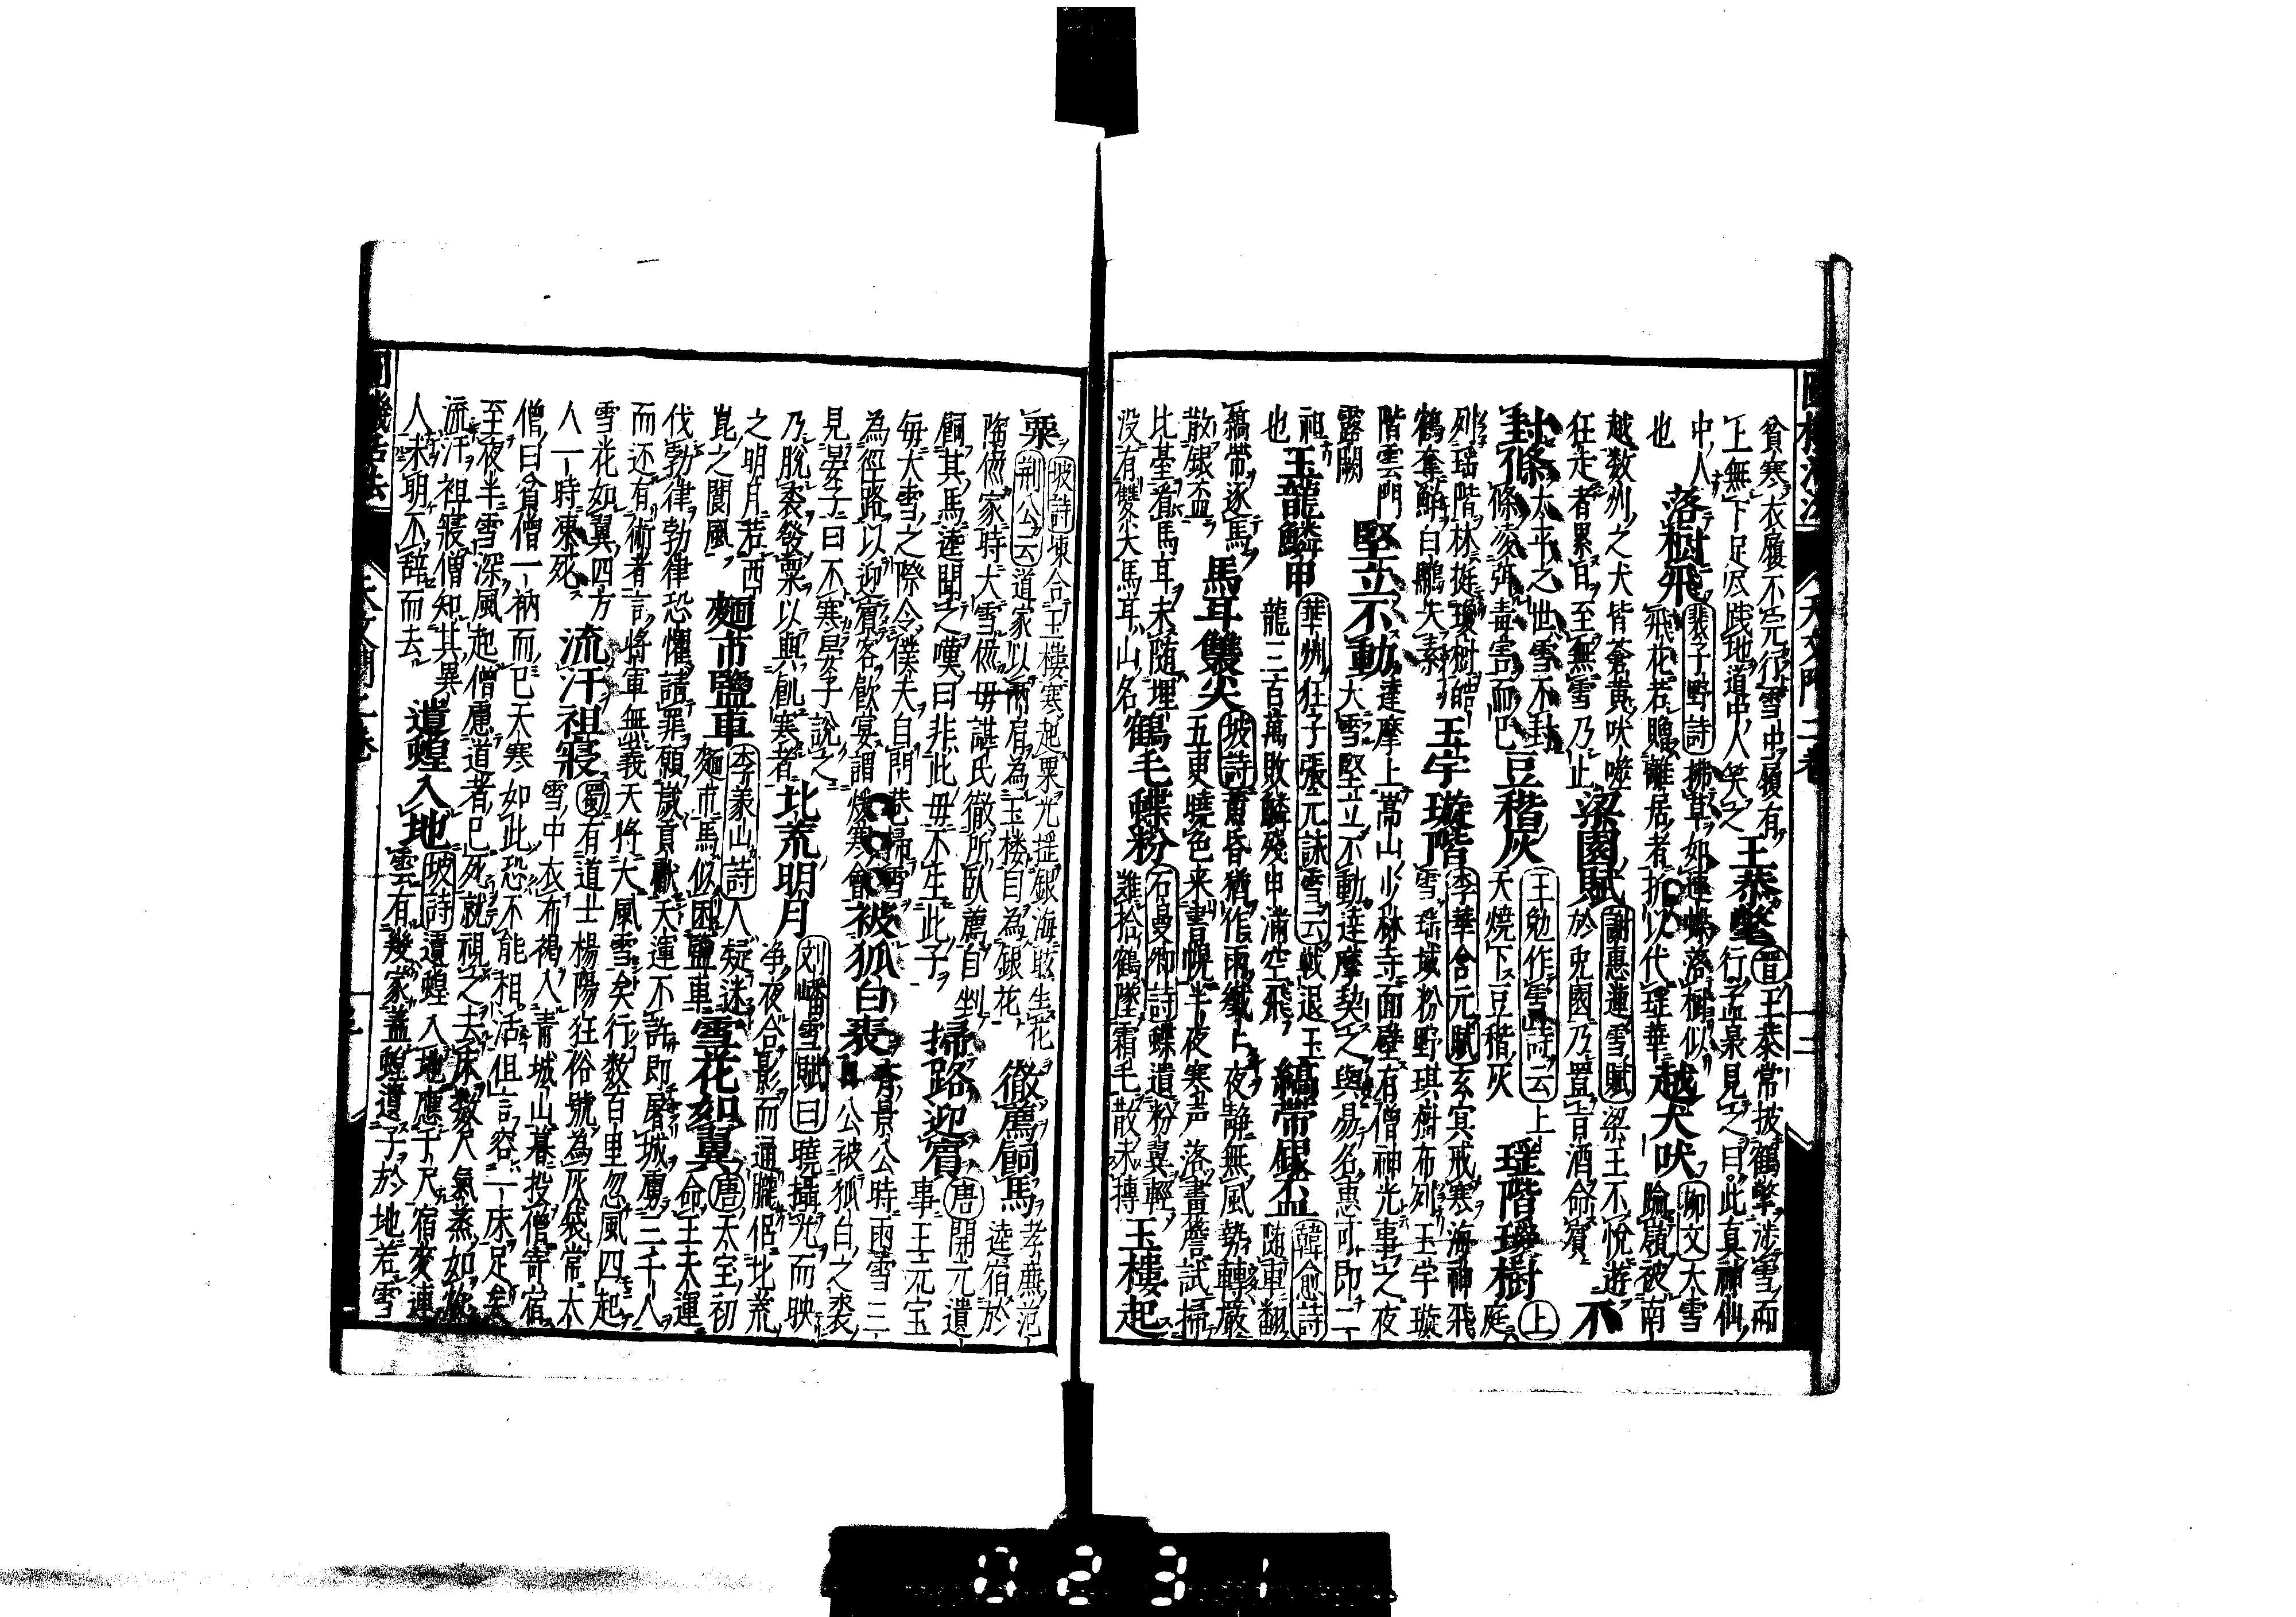 貧寒衣履不完行雪中履有
上無下足尽践地道中人笑之 王恭氅 晋 王恭常披鶴氅渉雪而
行孟昶見之曰此真神仙
中人 落樹飛 裴子野詩 拂草如連蝶落樹似
飛花若贈離居者折以代瑶華 越犬吠 柳文 大雪
也
踰嶺被南
越数州之犬皆蒼黄吠噬
狂走者累日至無雪乃止 梁園賦 謝惠連雪賦 梁王不悦遊
於兎園乃置旨酒命賓 不
封條 太平之世雪不封
條凌弭毒害而已 豆稭灰 王勉作雪詩云 上
天焼下豆稭灰 瑶階瓊樹 上
庭
列瑶階林挺瓊樹皓
鶴奪鮮白鷴失素 玉宇璇階 李華含元賦 玄冥戒寒海神飛
雪瑶城粉野琪樹布列玉宇璇
階雲門
露闕 堅立不動 達摩上嵩山少林寺面壁有僧神光事之夜
大雪堅立不動達摩契之與易名惠可即二
祖
也 玉龍鱗甲 華州狂子張元詠雪云 戦退玉
龍三百萬敗鱗残甲満空飛 縞帯銀盃 韓愈詩
随車翻
縞帯逐馬
散銀盃 馬耳雙尖 坡詩 黄昏猶作雨纎上夜静無風勢轉厳
五更曉色来書幌半夜寒声落畫簷試掃
北臺看馬耳未随埋
没有雙尖馬耳山名 鶴毛蝶粉 石曼卿詩 蝶遺粉翼輕
難拾鶴墜霜毛散未轉 玉樓起
粟 坡詩 凍合玉樓寒起粟光揺銀海眩生花
荊公云 道家以両肩為玉楼目為銀花 徹薦飼馬 孝廉范
逵宿於
陶侃家時大雪侃母諶氏徹所臥薦自剉
飼其馬逵聞之嘆曰非此母不生此子 掃路迎賓 唐 開元遺
事王元宝
毎大雪之際令僕夫自門巷掃雪
為徑路以迎賓客飲宴謂煖寒會 被狐白裘 斉景公時雨雪三
日公被狐白之裘
見晏子曰不寒晏子説之
乃脱裘發粟以與飢寒者 北荒明月 刘嶓雪賦曰 曉攝光而映
浄夜合影而通朧侶北荒
之明月若西
崑之閬風 麺市鹽車 李義山詩 人疑迷
麺市馬似困鹽車 雪花如翼 唐 太宝初
命王天運
伐勃律勃律恐懼請罪願歳貢献天運不許即屠城虜三千人
而还有術者言将軍無義天将大風雪矣行数百里忽風四起
雪花如翼四方
人一時凍死 流汗祖寝 蜀 有道士楊陽狂俗號為灰袋常大
雪中衣布褐入青城山暮投僧寄宿
僧曰貧僧一衲而已天寒如此恐不能相活但言容一床足矣
至夜半雪深風起僧慮道者已死就視之去床数尺氣蒸如炊
流汗祖寝僧知其異
人未明不辞而去 遺蝗入地 坡詩 遺蝗入地應千尺宿麥連
雲有幾家蓋蝗遺子於地若雪
0231